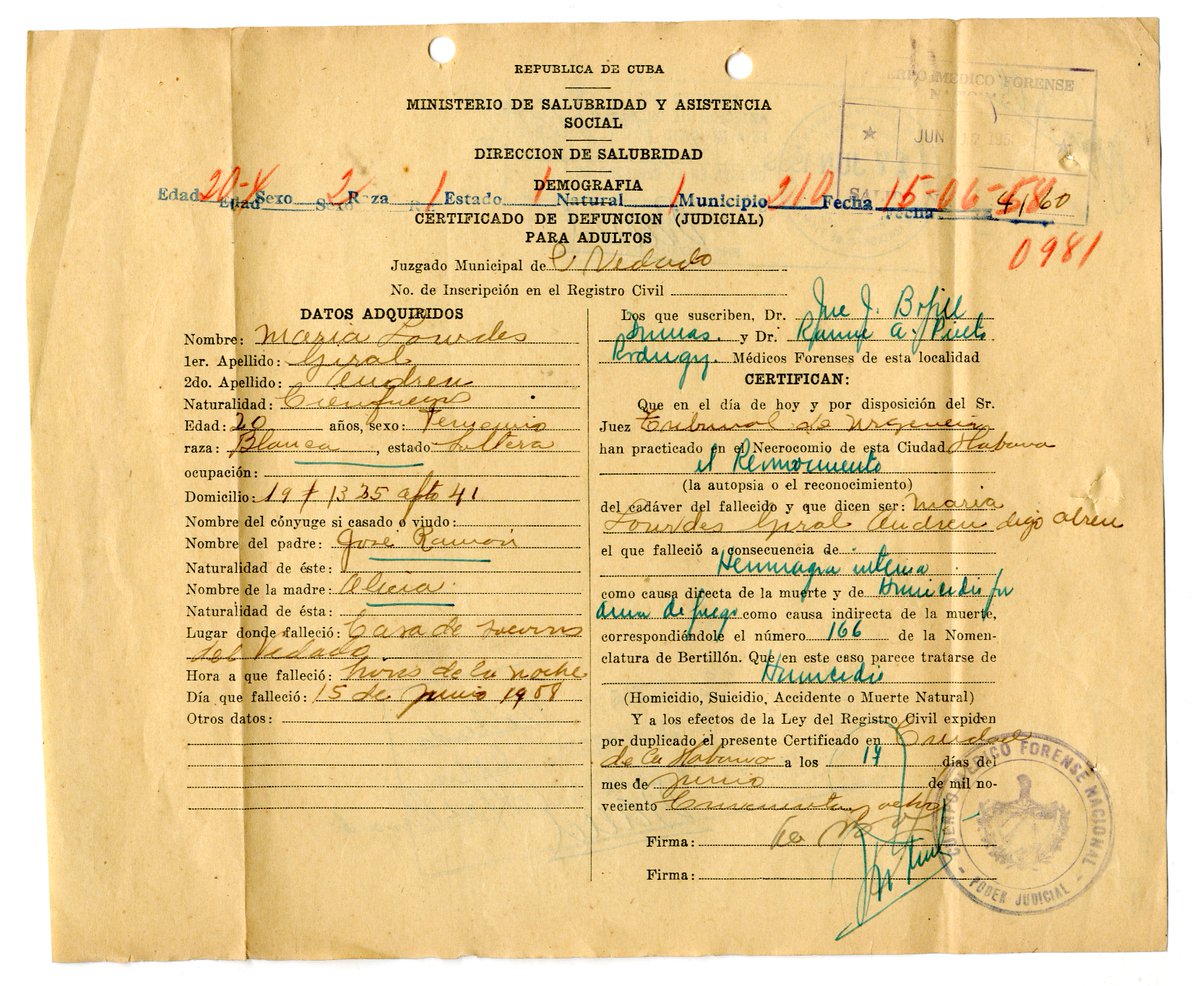 REPUBLICA DE CUBA
MINISTERIO DE SALUBRIDAD Y ASISTENCIA
SOCIAL
DIRECCION DE SALUBRIDAD
DEMOGRAFIA
CUERPO MEDICO FORENSE
JUN
SALI
Edad 20-4 Sexo 2 Raza 1 Estado 1 Natural 1 Municipio 210 Fecha 15-06-58
Edad Sexo Fecha 4160
0981
CERTIFICADO DE DEFUNCION (JUDICIAL)
PARA ADULTOS
Juzgado Municipal de El Vedado
No. de Inscripción en el Registro Civil
DATOS ADQUIRIDOS
Nombre: Maria Lourdes
1er. Apellido: Giral
2do. Apellido: Andreu
Naturalidad: Cienfuegos
Edad: 20 años, sexo: Femenino
raza: Blanca, estado Soltera
ocupación:
Domicilio: 19 # 1325 apto 41
Nombre del cónyuge si casado o viudo:
Nombre del padre: José Ramón
Naturalidad de éste:
Nombre de la madre: Alicia
Naturalidad de ésta:
Lugar donde falleció: Casa de Socorros
del Vedado
Hora a que falleció: horas de la noche
Día que falleció: 15 de Junio 1958
Otros datos:
Los que suscriben, Dr. J. Bofill
y Dr. A. Prieto
Médicos Forenses de esta localidad
CERTIFICAN:
Que en el día de hoy y por disposición del Sr.
Juez Tribunal de Urgencia
han practicado en Necrocomio de esta Ciudad Habana
el Reconocimiento
(la autopsia o el reconocimiento)
del cadáver del fallecido y que dicen ser: Maria
Lourdes Giral Andreu digo Abreu
el que falleció a consecuencia de
Hemorragia interna
como causa directa de la muerte y de Homicidio por
arma de fuego como causa indirecta de la muerte,
correspondiéndole el número 166 de la Nomen-
clatura de Bertillón. Que en este caso parece tratarse de
Homicidio
(Homicidio, Suicidio, Accidente o Muerte Natural)
Y a los efectos de la Ley del Registro Civil expiden
por duplicado el presente Certificado en Ciudad
de la Habana a los 17 días del
mes de Junio de mil no-
veciento Cincuenta y ocho
Firma:
Firma:
CUERPO MEDICO FORENSE NACIONAL
- PODER JUDICIAL -